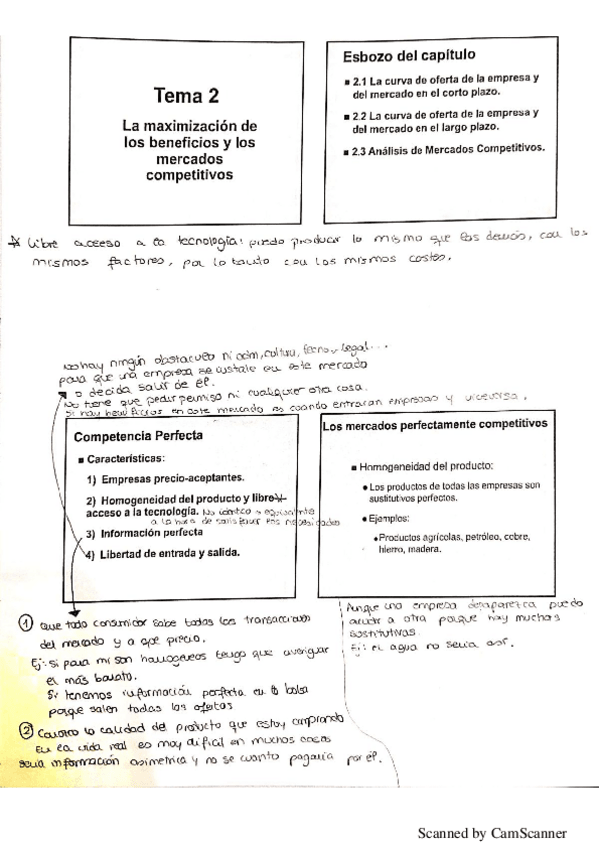 Tema 2
La maximización de
los beneficios y los
mercados
competitivos
Esbozo del capítulo
■ 2.1 La curva de oferta de la empresa y
del mercado en el corto plazo.
■ 2.2 La curva de oferta de la empresa y
del mercado en el largo plazo.
■ 2.3 Análisis de Mercados Competitivos.
* Libre acceso a la tecnología: puedo producir lo mismo que los demás, con los
mismos factores, por lo tanto con los mismos costes.
No hay ningún obstáculo ni adm, cultu, tecno, legal...
para que una empresa se instale en este mercado
o decida salir de él.
No tiene que pedir permiso ni cualquier otra cosa.
Si hay beneficios en este mercado es cuando entraran empresas y viceversa.
Competencia Perfecta
■ Características:
1) Empresas precio-aceptantes.
2) Homogeneidad del producto y libre *
acceso a la tecnología. No idéntico → equivalente
a la hora de satisfacer las necesidades
3) Información perfecta
4) Libertad de entrada y salida.
Los mercados perfectamente competitivos
■ Homogeneidad del producto:
● Los productos de todas las empresas son
sustitutivos perfectos.
● Ejemplos:
● Productos agrícolas, petróleo, cobre,
hierro, madera.
① Que todo consumidor sabe todas las transacciones
del mercado y a que precio.
Ej: si para mi son homogéneos tengo que averiguar
el más barato.
Si tenemos información perfecta en la bolsa
porque salen todas las ofertas
② Conozco la calidad del producto que estoy comprando
En la vida real es muy difícil en muchos casos
sería información asimetrica y no se cuanto pagaría por él.
Aunque una empresa desaparezca puedo
acudir a otra porque hay muchas
sustitutivas.
Ej: el agua no sería así.
Scanned by CamScanner